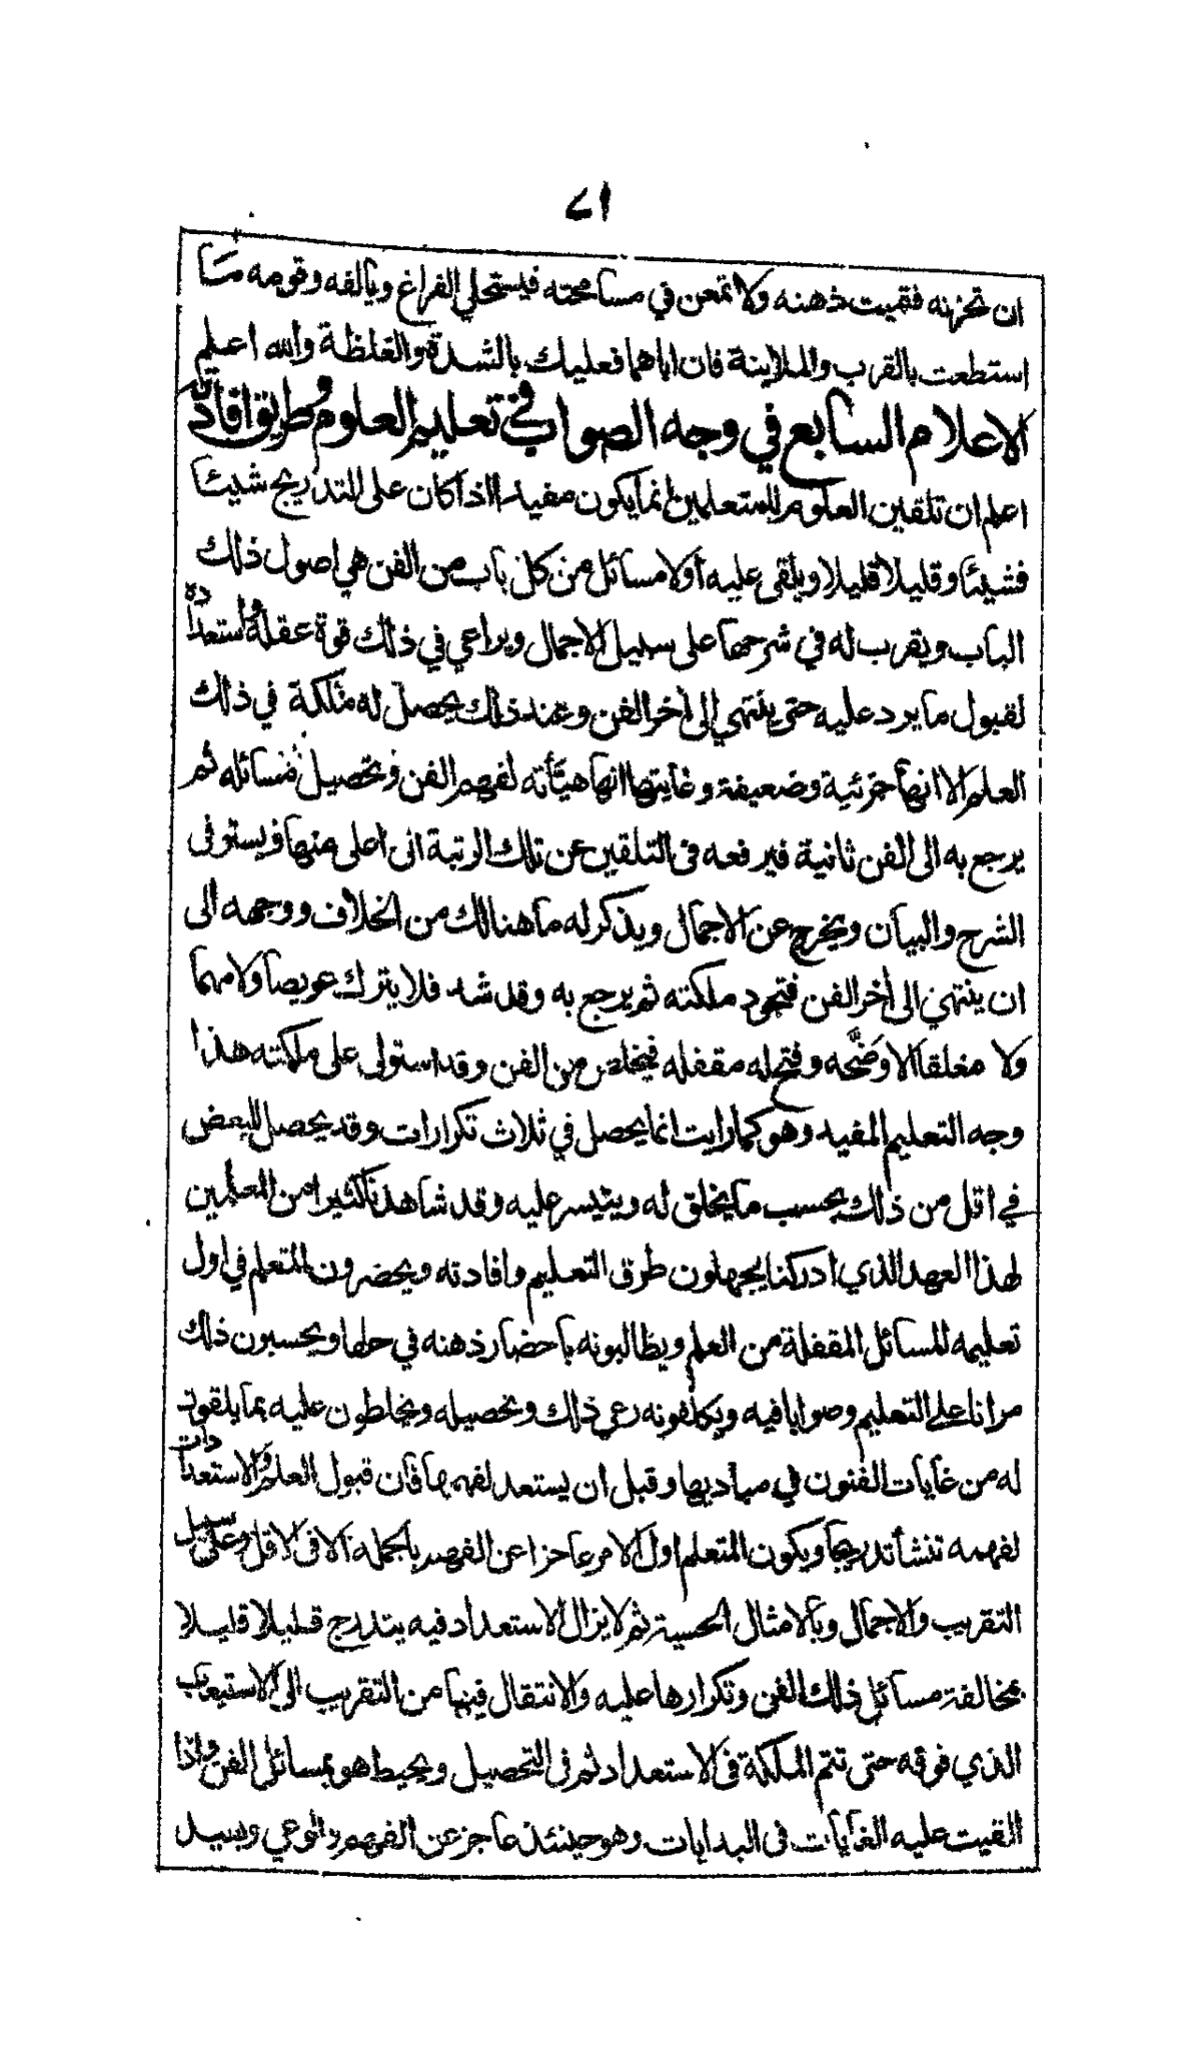 ٧١
ان تحزنه فتميت ذهنه ولا تمعن في مسامحته فيستحلي الفراغ ويألفه وقومه مـا
استطعت بالقرب والملاينة فان اباهما فعليك بالشدة والغلظة والله اعلم
الاعلام السابع في وجه الصواب في تعليم العلوم وطريق افادته
اعلم ان تلقين العلوم للمتعلمين انما يكون مفيدا اذا كان على التدريج شيئا
فشيئا وقليلا قليلا ويلقى عليه أولا مسائل من كل باب من الفن هي اصول ذلك
الباب ويقرب له في شرحها على سبيل الاجمال ويراعي في ذلك قوة عقله واستعداده
لقبول ما يرد عليه حتى ينتهي إلى أخر الفن وعند ذلك يحصل له ملكة في ذلك
العلم الا انها جزئية وضعيفة وغايتها انها هيأته لفهم الفن وتحصيل مسائله ثم
يرجع به الى الفن ثانية فيرفعه فى التلقين عن تلك الرتبة الى اعلى منها ويستوفى
الشرح والبيان ويخرج عن الاجمال ويذكر له ما هنالك من الخلاف ووجهه الى
ان ينتهي الى أخر الفن فتجود ملكته ثم يرجع به وقد شد فلا يترك عويصا ولا مهما
ولا مغلقا الا وضحه وفتح له مقفله فيخلص من الفن وقد استولى على ملكته هذا
وجه التعليم المفيد وهو كما رايت انما يحصل في ثلاث تكرارات وقد يحصل للبعض
في اقل من ذلك بحسب ما يخلق له ويتيسر عليه وقد شاهدنا كثيرا من المعلمين
لهذا العهد الذي ادركنا يجهلون طرق التعليم وافادته ويحضرون للمتعلم في اول
تعليمه للمسائل المقفلة من العلم ويطالبونه باحضار ذهنه في حلها ويحسبون ذلك
مرانا على التعليم وصوابا فيه ويكلفونه رعي ذلك وتحصيله ويخلطون عليه بما يلقون
له من غايات الفنون في مباديها وقبل ان يستعد لفهمها فان قبول العلم والاستعدادات
لفهمه تنشأ تدريجا ويكون المتعلم اول الامر عاجزا عن الفهم بالجملة الا فى الاقل وعلى سبيل
التقريب والاجمال وبالامثال الحسية ثم لا يزال الاستعداد فيه يتدرج قليلا قليلا
بمخالفة مسائل ذلك الفن وتكرارها عليه والانتقال فيها من التقريب الى الاستيعاب
الذي فوقه حتى تتم الملكة فى الاستعداد ثم فى التحصيل ويحيط هو بمسائل الفن واذا
القيت عليه الغايات فى البدايات وهو حينئذ عاجز عن الفهم والوعي وبعيد